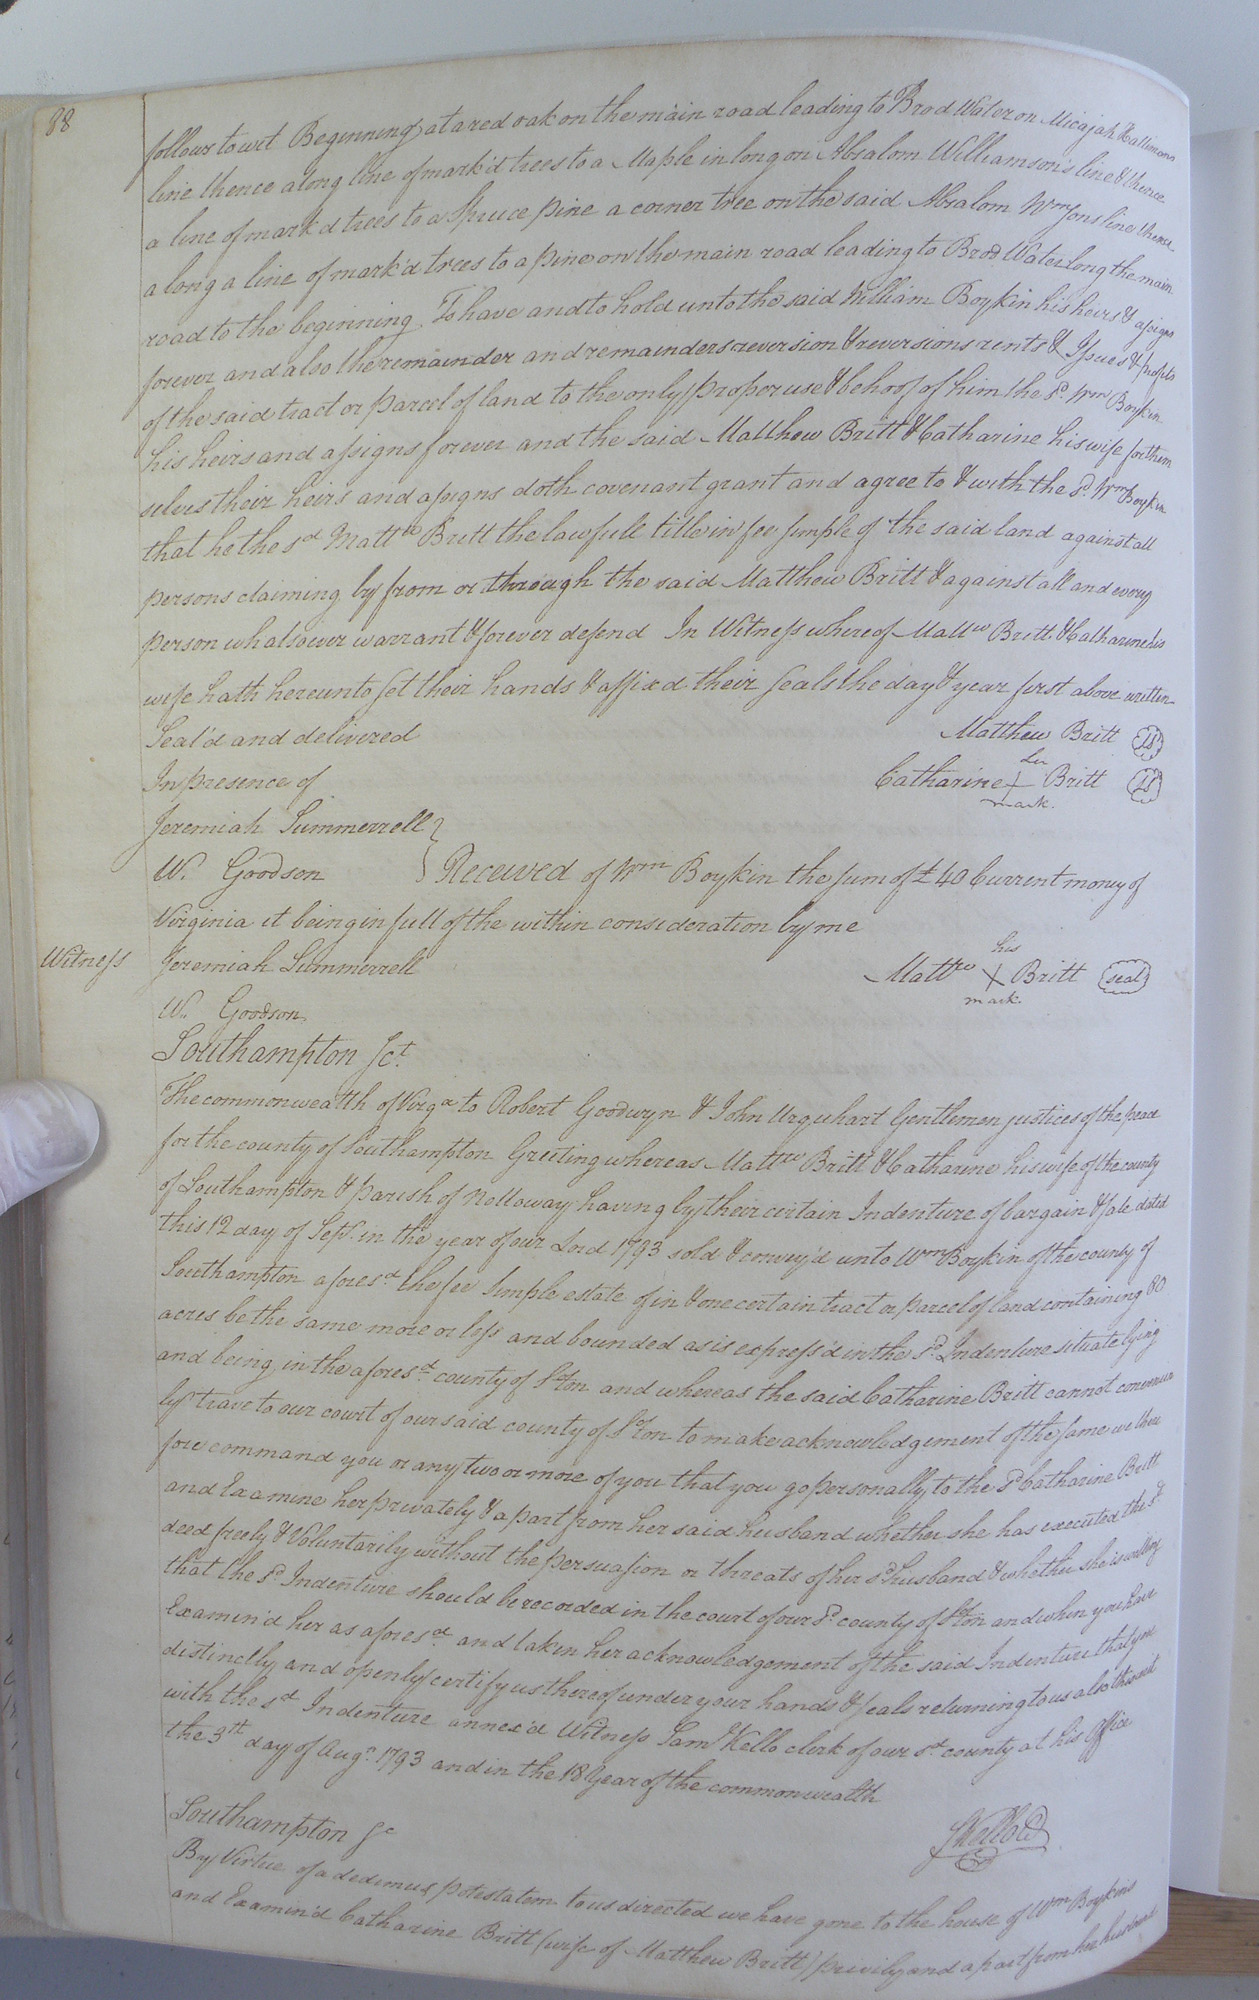 88
follows towit Beginning at a red oak on the main road leading to Brod Water on Micajah
line thence along line of mark'd trees to a Maple in long on Absalom Williamson's line & thence
a line of mark'd trees to a Spruce pine a corner tree on the said Absalom Wmsons line thence
along a line of mark'd trees to a pine on the main road leading to Brod Water long the main
road to the beginning To have and to hold unto the said William Boykin his heirs & assigns
forever and also the remainder and remainders reversion & reversions rents & Issues & profits
of the said tract or parcel of land to the only proper use & behoof of him the sd. Wm Boykin
his heirs and assigns forever and the said Matthew Britt & Catharine his wife for them
selves their heirs and assigns doth covenant grant and agree to & with the sd. Wm Boykin
that he the sd Mattw Britt the lawfull title in fee simple of the said land against all
persons claiming by from or through the said Matthew Britt & against all and every
person whatsoever warrant & forever defend In Witness whereof Mattw Britt & Catharine his
wife hath hereunto set their hands & affixd their seals the day & year first above written
Seal'd and delivered Matthew Britt LS
In presence of Catharine her + mark. Britt LS
Jeremiah Summerrell }
W. Goodson } Received of Wm Boykin the sum of £40 Current money of
Virginia it being in full of the within consideration by me
Witness Jeremiah Summerrell Mattw his X mark. Britt seal
W. Goodson
Southampton Sct.
The commonwealth of Virga to Robert Goodwyn & John Urquhart Gentlemen justices of the peace
for the county of Southampton Greeting whereas Mattw Britt & Catharine his wife of the county
of Southampton & parish of Nottoway having by their certain Indenture of bargain & sale dated
this 12 day of Sepr. in the year of our Lord 1793 sold & convey'd unto Wm Boykin of the county of
Southampton aforesd. the fee simple estate of in & one certain tract or parcel of land containing 80
acres be the same more or less and bounded as is express'd in the sd. Indenture situate lying
and being in the aforesd. county of S'ton and whereas the said Catharine Britt cannot convenien
ly trave to our court of our said county of S'ton to make acknowledgement of the same we there
fore command you or any two or more of you that you go personally to the sd Catharine Britt
and Examine her privately & apart from her said husband whether she has executed the sd.
deed freely & Voluntarily without the persuasion or threats of her sd husband & whether she is willing
that the sd. Indenture should be recorded in the court of our sd. county of S'ton and when you have
Examin'd her as aforesd. and taken her acknowledgement of the said Indenture that you
distinctly and openly certify us thereof under your hands & seals returning to us also this writ
with the sd. Indenture annex'd Witness Saml Kello clerk of our sd. county at his Office
the 3th day of Augt. 1793 and in the 18 Year of the commonwealth
Southampton Sc SKello Cl
By Virtue of a dedimus potestatem to us directed we have gone to the house of Wm Boykins
and Examin'd Catharine Britt (wife of Matthew Britt) privily and apart from her husband